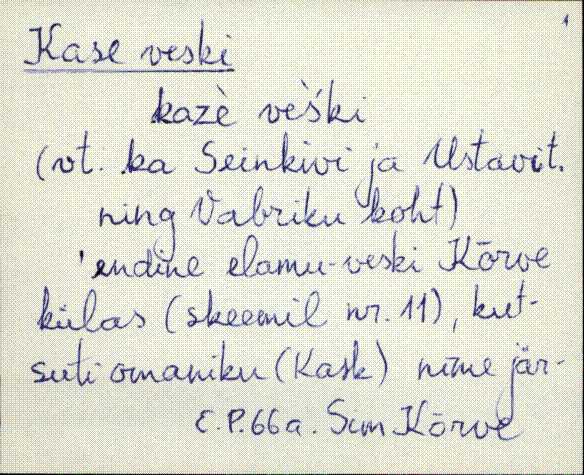 1
Kase veski
kazè vèški
(vt. ka Seinkivi ja Ustavit.
ning Vabriku koht)
'endine elamu-veski Kõrve
külas (skeemil nr. 11), kut-
suti omaniku (Kask) nime jär-
E.P. 66 a. Sim Kõrve